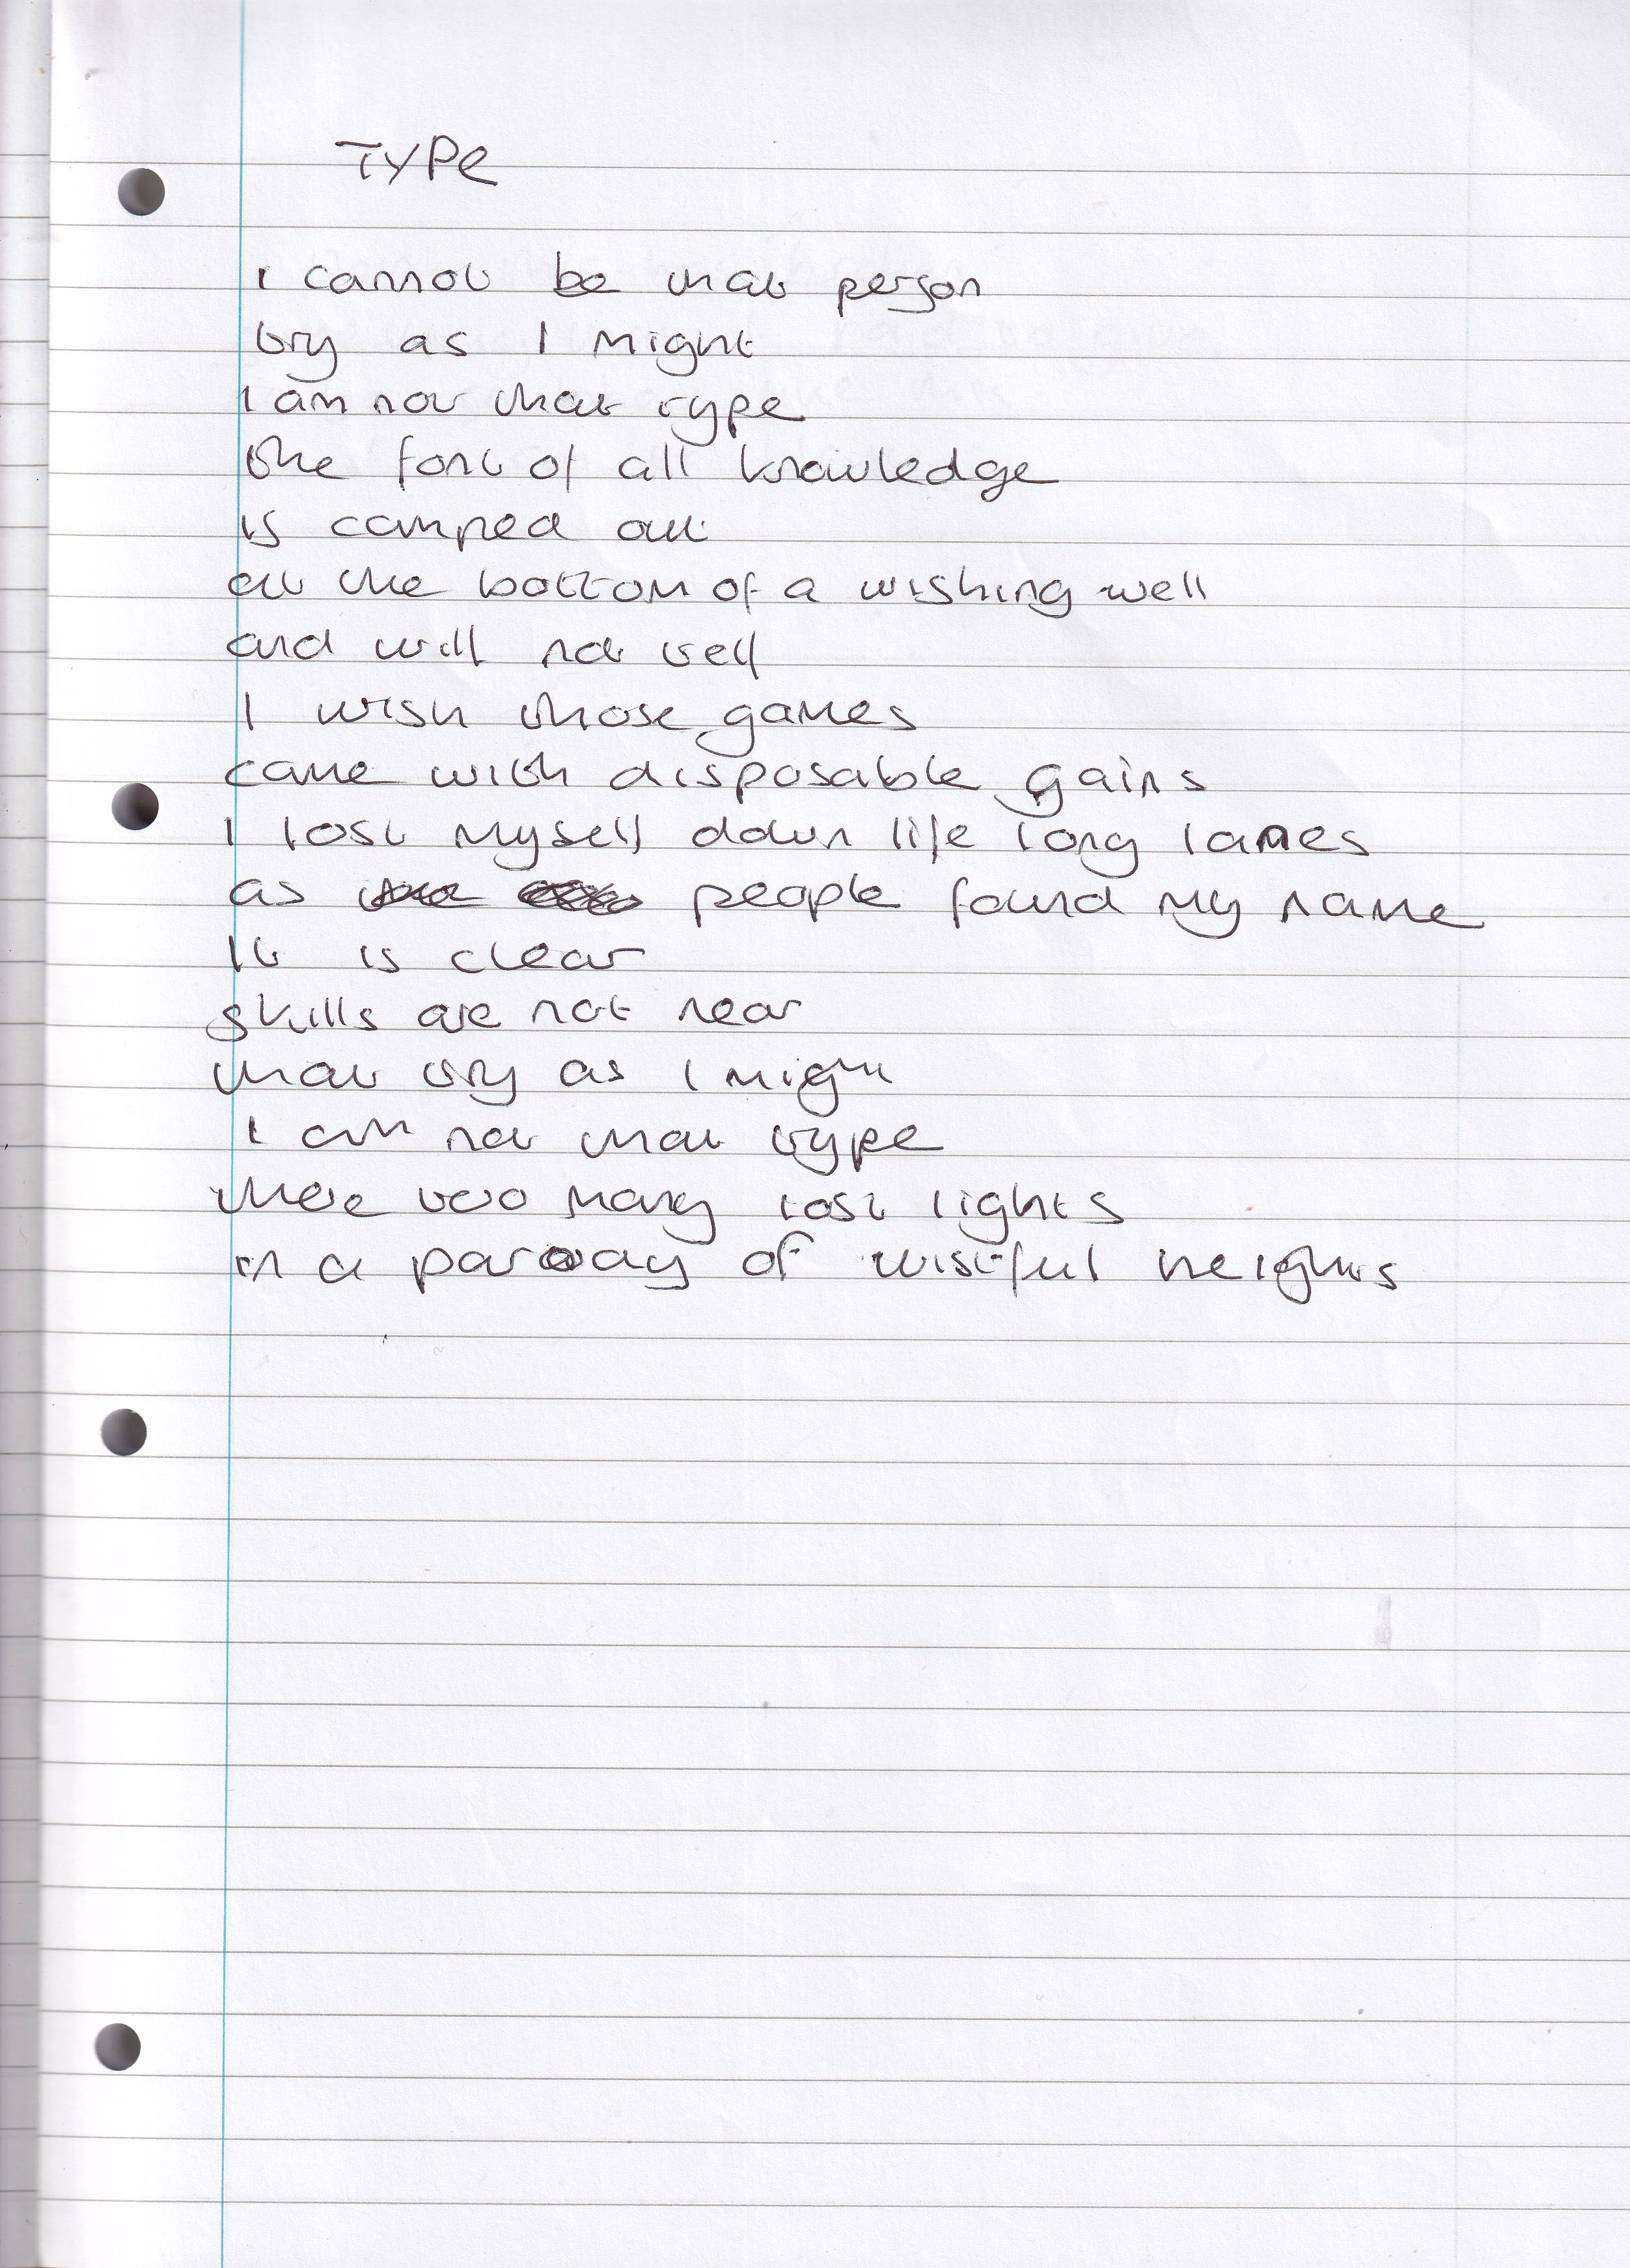 TYPE
I cannot be that person
try as I might
I am not that type
the font of all knowledge
is camped out
at the bottom of a wishing well
and will not tell
I wish those games
came with disposable gains
I lost myself down life long lanes
as people found my name
It is clear
skills are not near
that try as I might
I am not that type
there too many lost lights
in a paraway of wistful heights